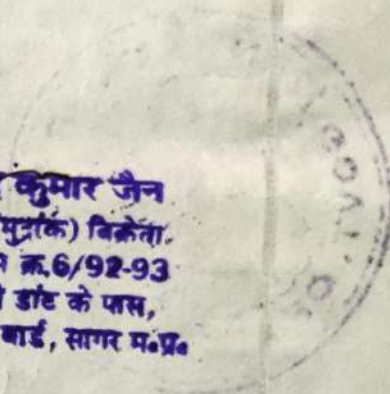 कुमार जैन
(मुद्रांक) विक्रेता
क्र.6/92-93
डांट के पास,
वार्ड, सागर म.प्र.
GOVT. OF